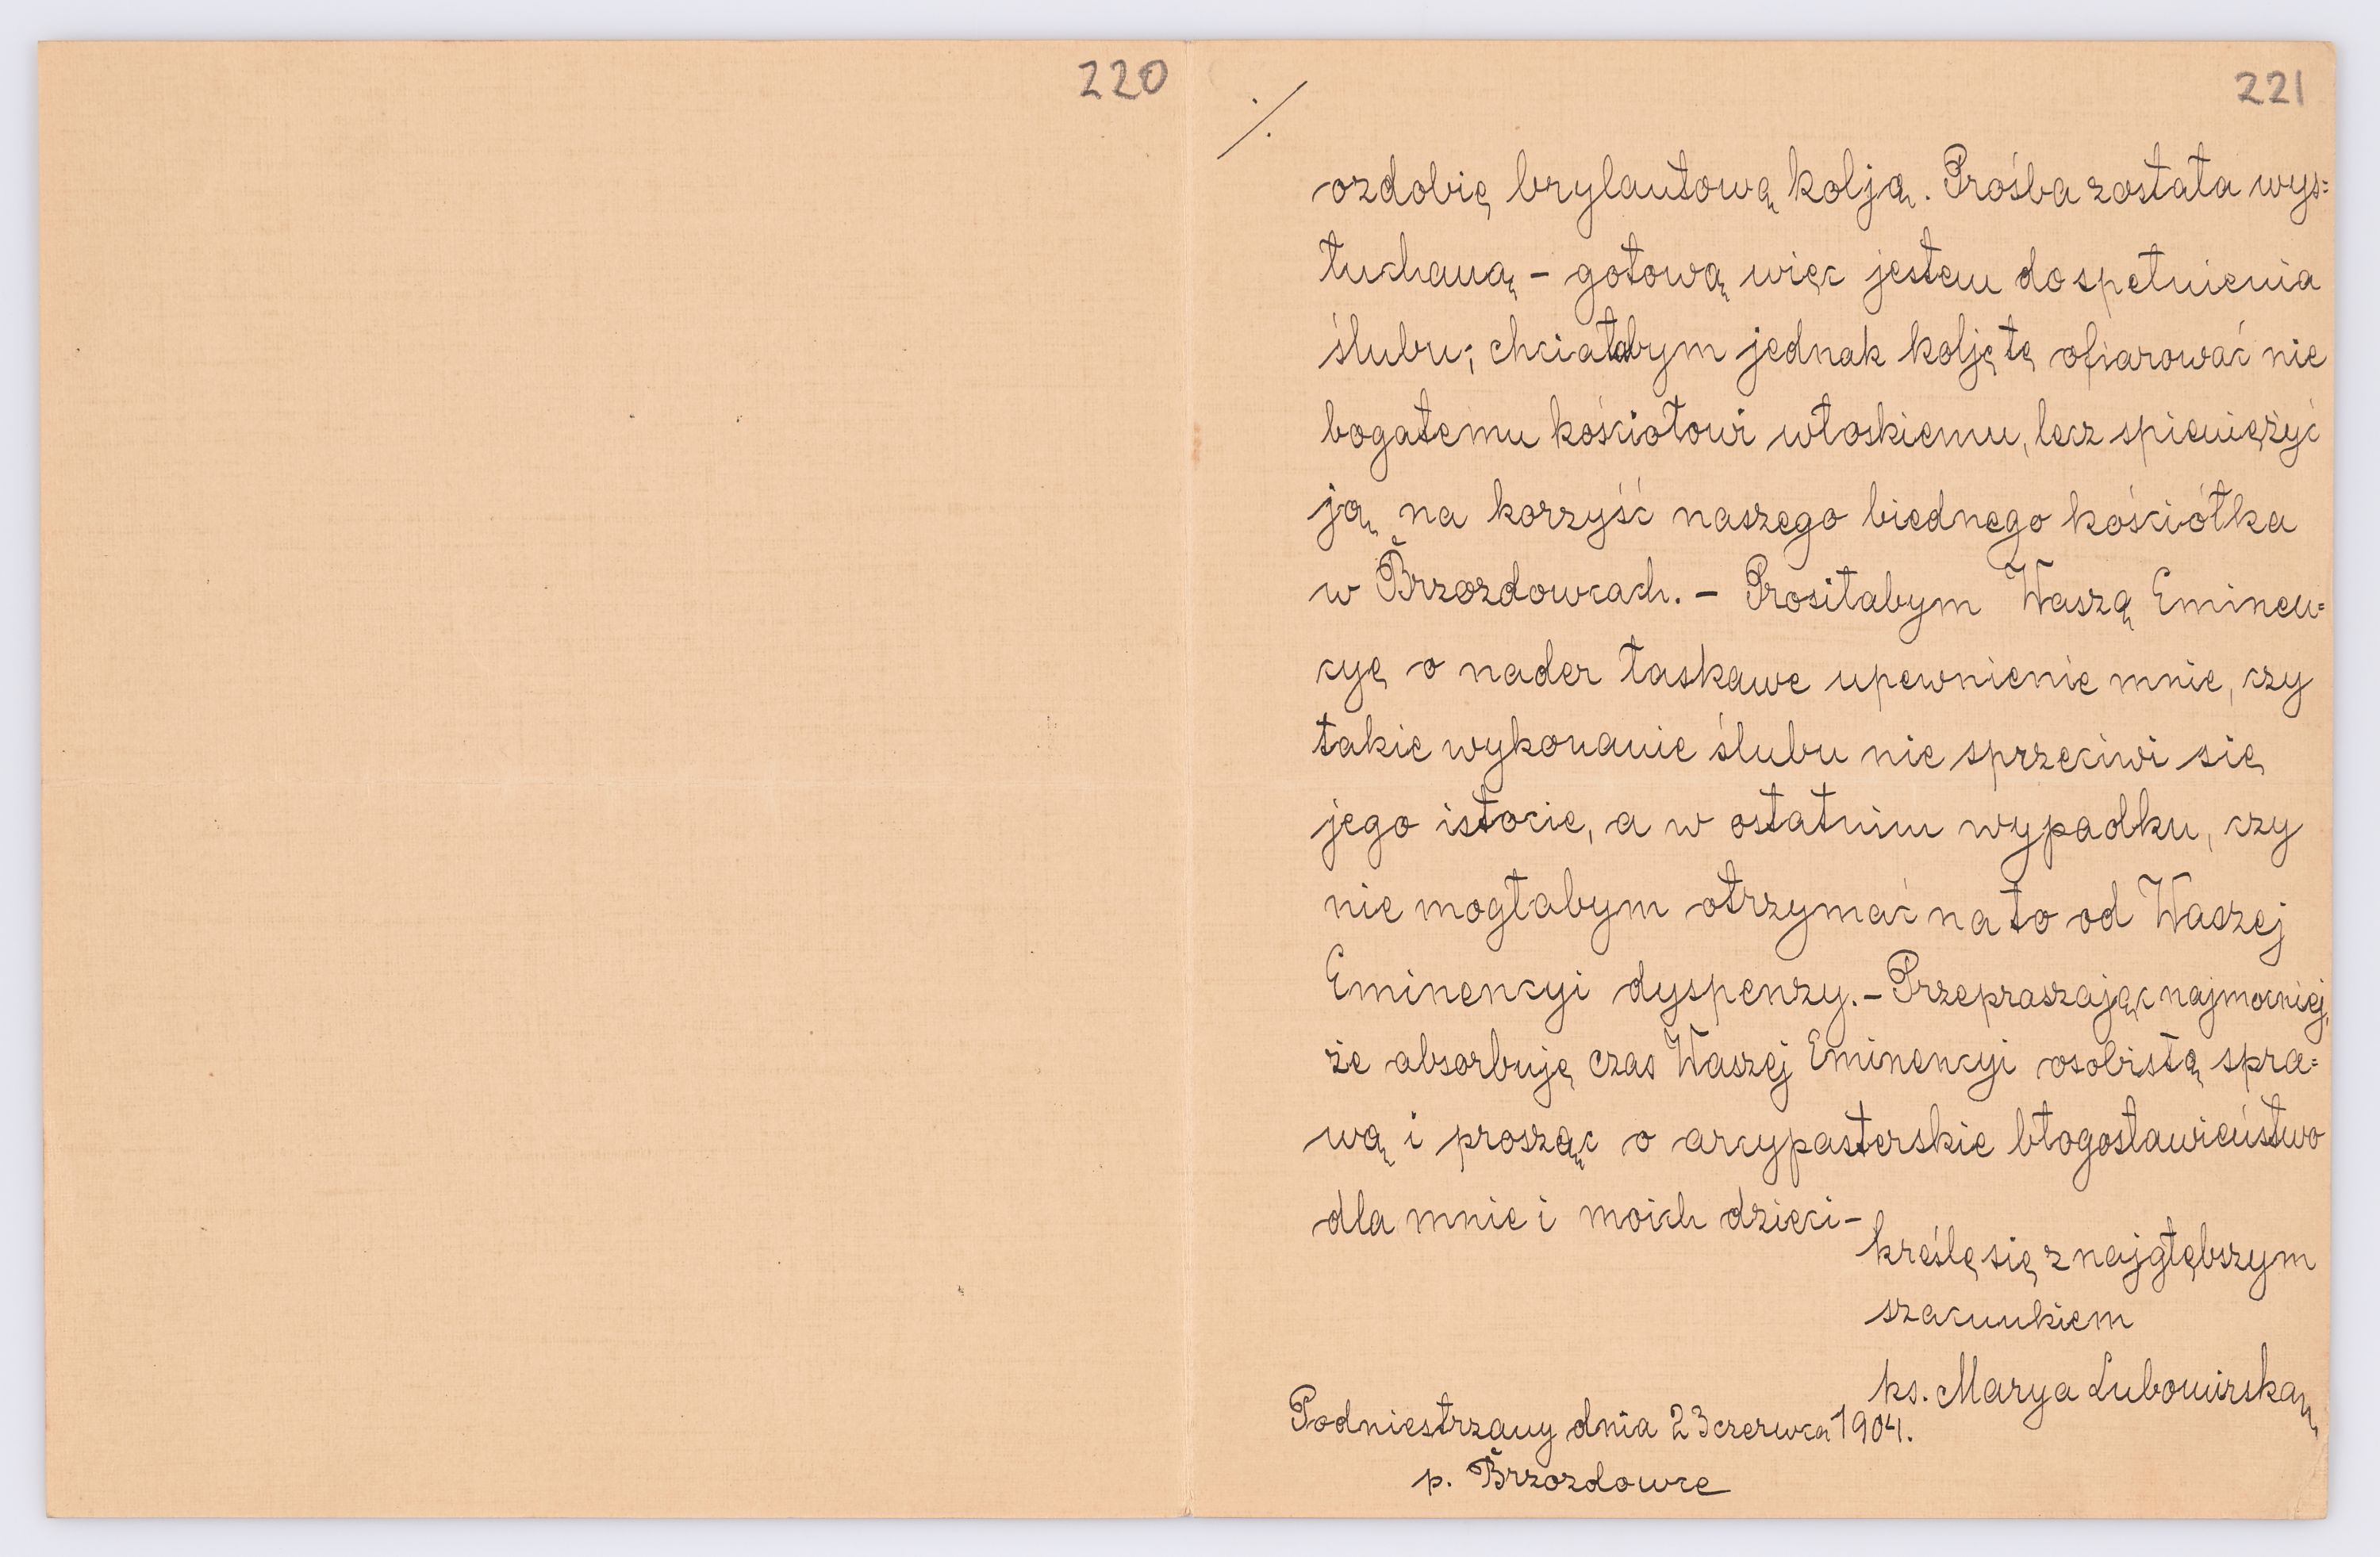 220
221
./.
ozdobię brylantową kolją. Prośba została wys=
łuchaną – gotową więc jestem do spełnienia
ślubu; chciałabym jednak kolję tę ofiarować nie
bogatemu kościołowi włoskiemu, lecz spieniężyć
ją na korzyść naszego biednego kościółka
w Brzozdowcach. – Prosiłabym Waszą Eminen=
cyę o nader łaskawe upewnienie mnie, czy
takie wykonanie ślubu nie sprzeciwi się
jego istocie, a w ostatnim wypadku, czy
nie mogłabym otrzymać na to od Waszej
Eminencyi dyspenzy. – Przepraszając najmocniej,
że absorbuję czas Waszej Eminencyi osobistą spra=
wą i prosząc o arcypasterskie błogosławieństwo
dla mnie i moich dzieci –
kreślę się z najgłębszym
szacunkiem
ks. Marya Lubomirska
Podniestrzany dnia 23 czerwca 1904.
p. Brzozdowce